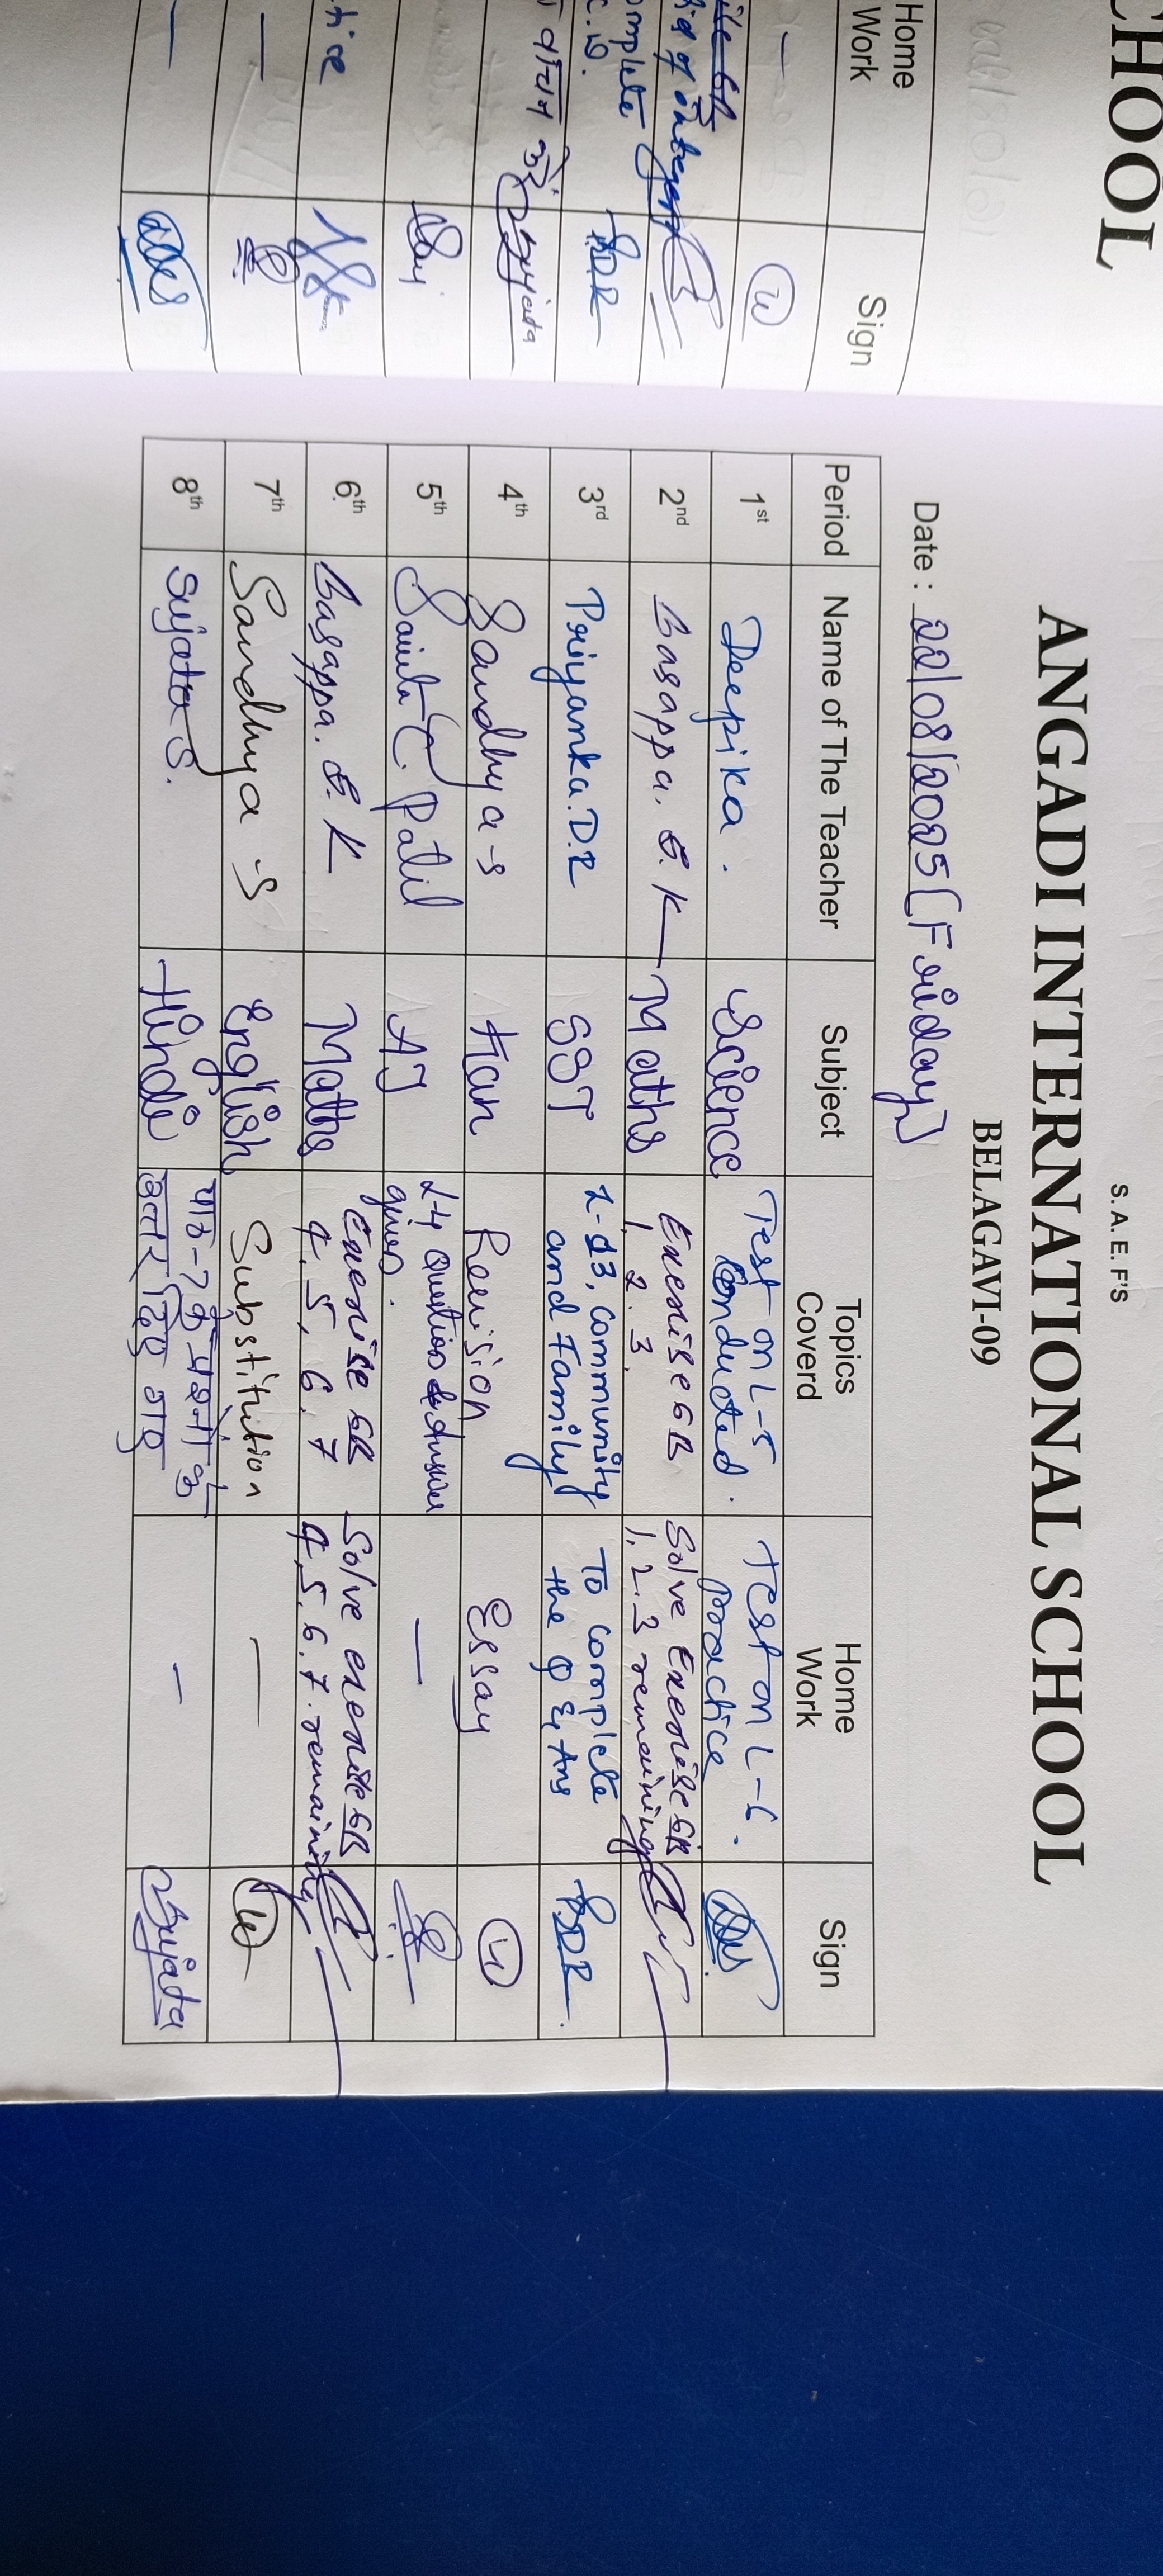 CHOOL
Home
Work
Sign
complete
C.W.
S. A. E. F'S
ANGADI INTERNATIONAL SCHOOL
BELAGAVI-09
Date : 22/08/2025 [Friday]
Period Name of The Teacher Subject Topics Coverd Home Work Sign
1st Deepika. Science Test on L-5 Conducted. Test on L-6. practice
2nd Basappa. G. K Maths Exercise 6B 1, 2. 3. Solve Exercise 6B 1, 2. 3 remaining
3rd Priyanka.D.R SST L-13, Community and Family To complete the Q & Ans PDR.
4th Sandhya S Kan Revision Essay
5th Patil AI L-4 Question & Answer given. —
6th Basappa. G. K Maths Exercise 6B 4. 5, 6. 7 Solve exercise 6B 4, 5. 6. 7. remaining
7th Sandhya S English Substitution —
8th Sujata S. Hindi पाठ-7 के प्रश्नों के उत्तर दिए गए — Sujata